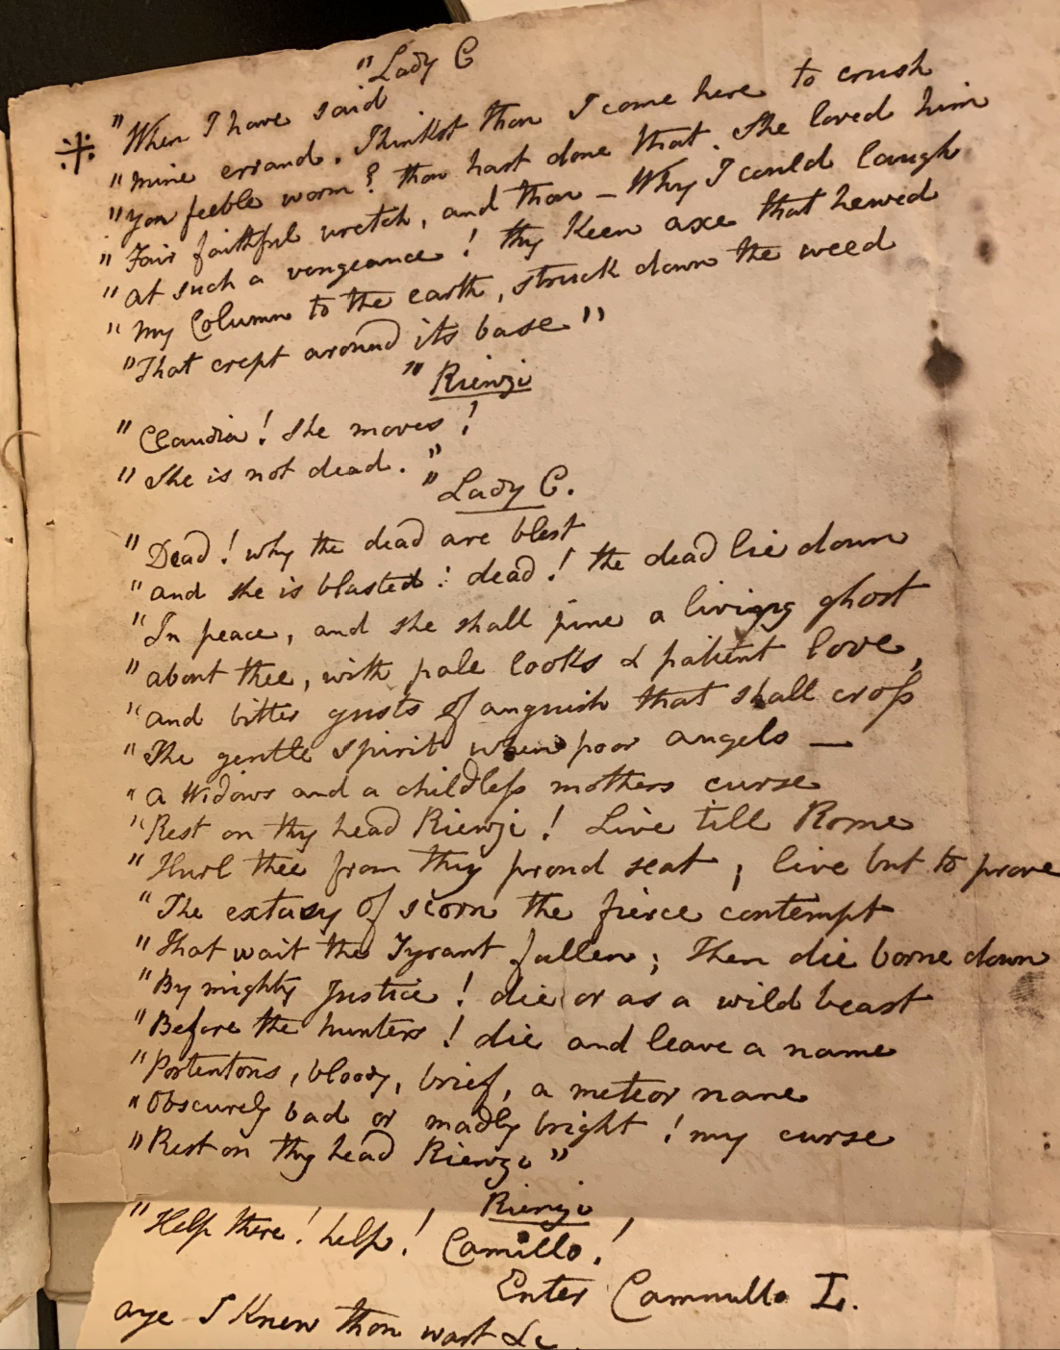 "Lady C
"When I have said
"mine errand. Thinkst thou I come here to crush
"yon feeble worm? thou hast done that. She loved him
"Fair faithful wretch, and thou — Why I could laugh
"at such a vengeance! thy Keen axe that hewed
"my Column to the earth, struck down the weed
"That crept around its base"
"Rienzi
"Claudia! She moves!
"She is not dead."
"Lady C.
"Dead! why the dead are blest
"and she is blasted: dead! the dead lie down
"In peace, and she shall pine a living ghost
"about thee, with pale looks & patient love,
"and bitter gusts of anguish that shall cross
"The gentle spirit when poor angels —
"a Widows and a childless mothers curse
"Rest on thy head Rienzi! Live till Rome
"Hurl thee from thy proud seat; live but to prove
"The extasy of scorn the fierce contempt
"That wait the Tyrant fallen; Then die borne down
"By mighty Justice! die or as a wild beast
"Before the hunters! die and leave a name
"Portentous, bloody, brief, a meteor name
"Obscurely bad or madly bright! my curse
"Rest on thy head Rienzi"
Rienzi
"Help there! help! Camillo!
Enter Cammillo L.
aye I Knew thou wast &c.